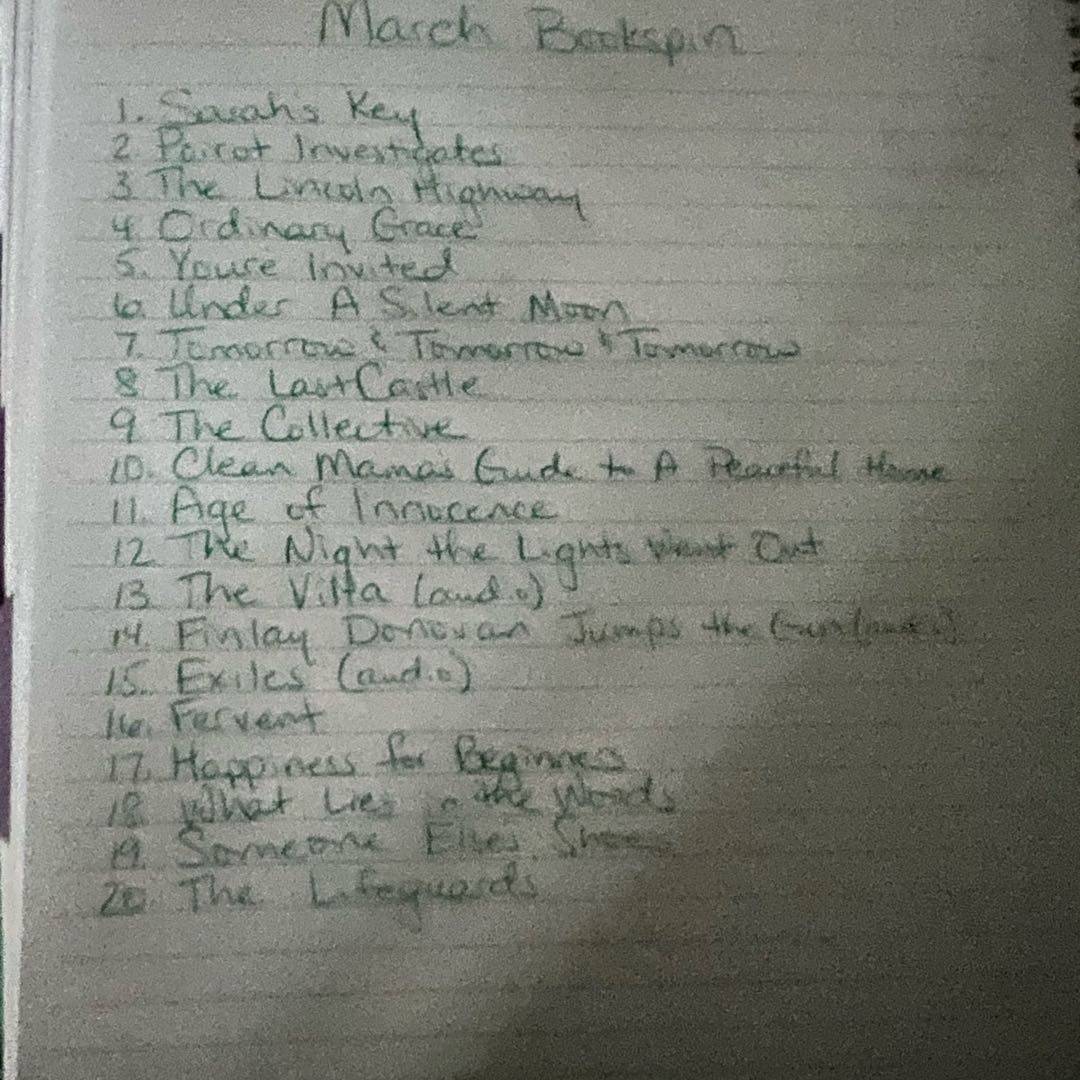 March Bookspin
1. Sarah's Key
2 Poirot Investigates
3 The Lincoln Highway
4. Ordinary Grace
5. Youre Invited
6. Under A Silent Moon
7. Tomorrow & Tomorrow & Tomorrow
8 The Last Castle
9 The Collective
10. Clean Mama's Guide to A Peaceful Home
11. Age of Innocence
12 The Night the Lights Went Out
13 The Villa (audio)
14. Finlay Donovan Jumps the Gun (audio)
15. Exiles (audio)
16. Fervent
17. Happiness for Beginners
18 What Lies in the Woods
19. Someone Elses Shoes
20 The Lifeguards